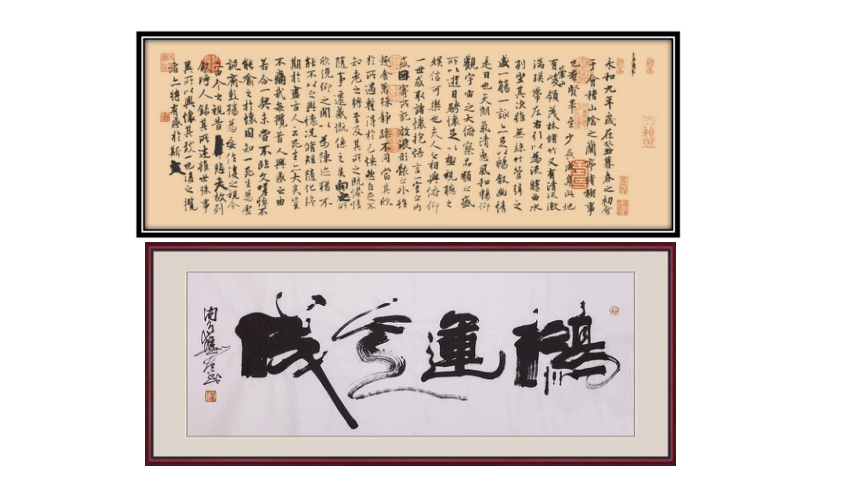 永和九年歲在癸丑暮春之初會
于會稽山陰之蘭亭脩稧事
也群賢畢至少長咸集此地
有崇山峻領茂林脩竹又有清流激
湍暎帶左右引以為流觴曲水
列坐其次雖無絲竹管弦之
盛一觴一詠亦足以暢敘幽情
是日也天朗氣清惠風和暢仰
觀宇宙之大俯察品類之盛
所以遊目騁懷足以極視聽之
娛信可樂也夫人之相與俯仰
一世或取諸懷抱悟言一室之內
或因寄所託放浪形骸之外雖
趣舍萬殊靜躁不同當其欣
於所遇暫得於己快然自足不
知老之將至及其所之既惓情
隨事遷感慨係之矣向之所
欣俛仰之閒以為陳迹猶不
能不以之興懷況脩短隨化終
期於盡古人云死生亦大矣豈
不痛哉每攬昔人興感之由
若合一契未嘗不臨文嗟悼不
能喻之於懷固知一死生為虛
誕齊彭殤為妄作後之視今
亦由今之視昔悲夫故列
敘時人錄其所述雖世殊事
異所以興懷其致一也後之攬
者亦將有感於斯文
鴻運天成